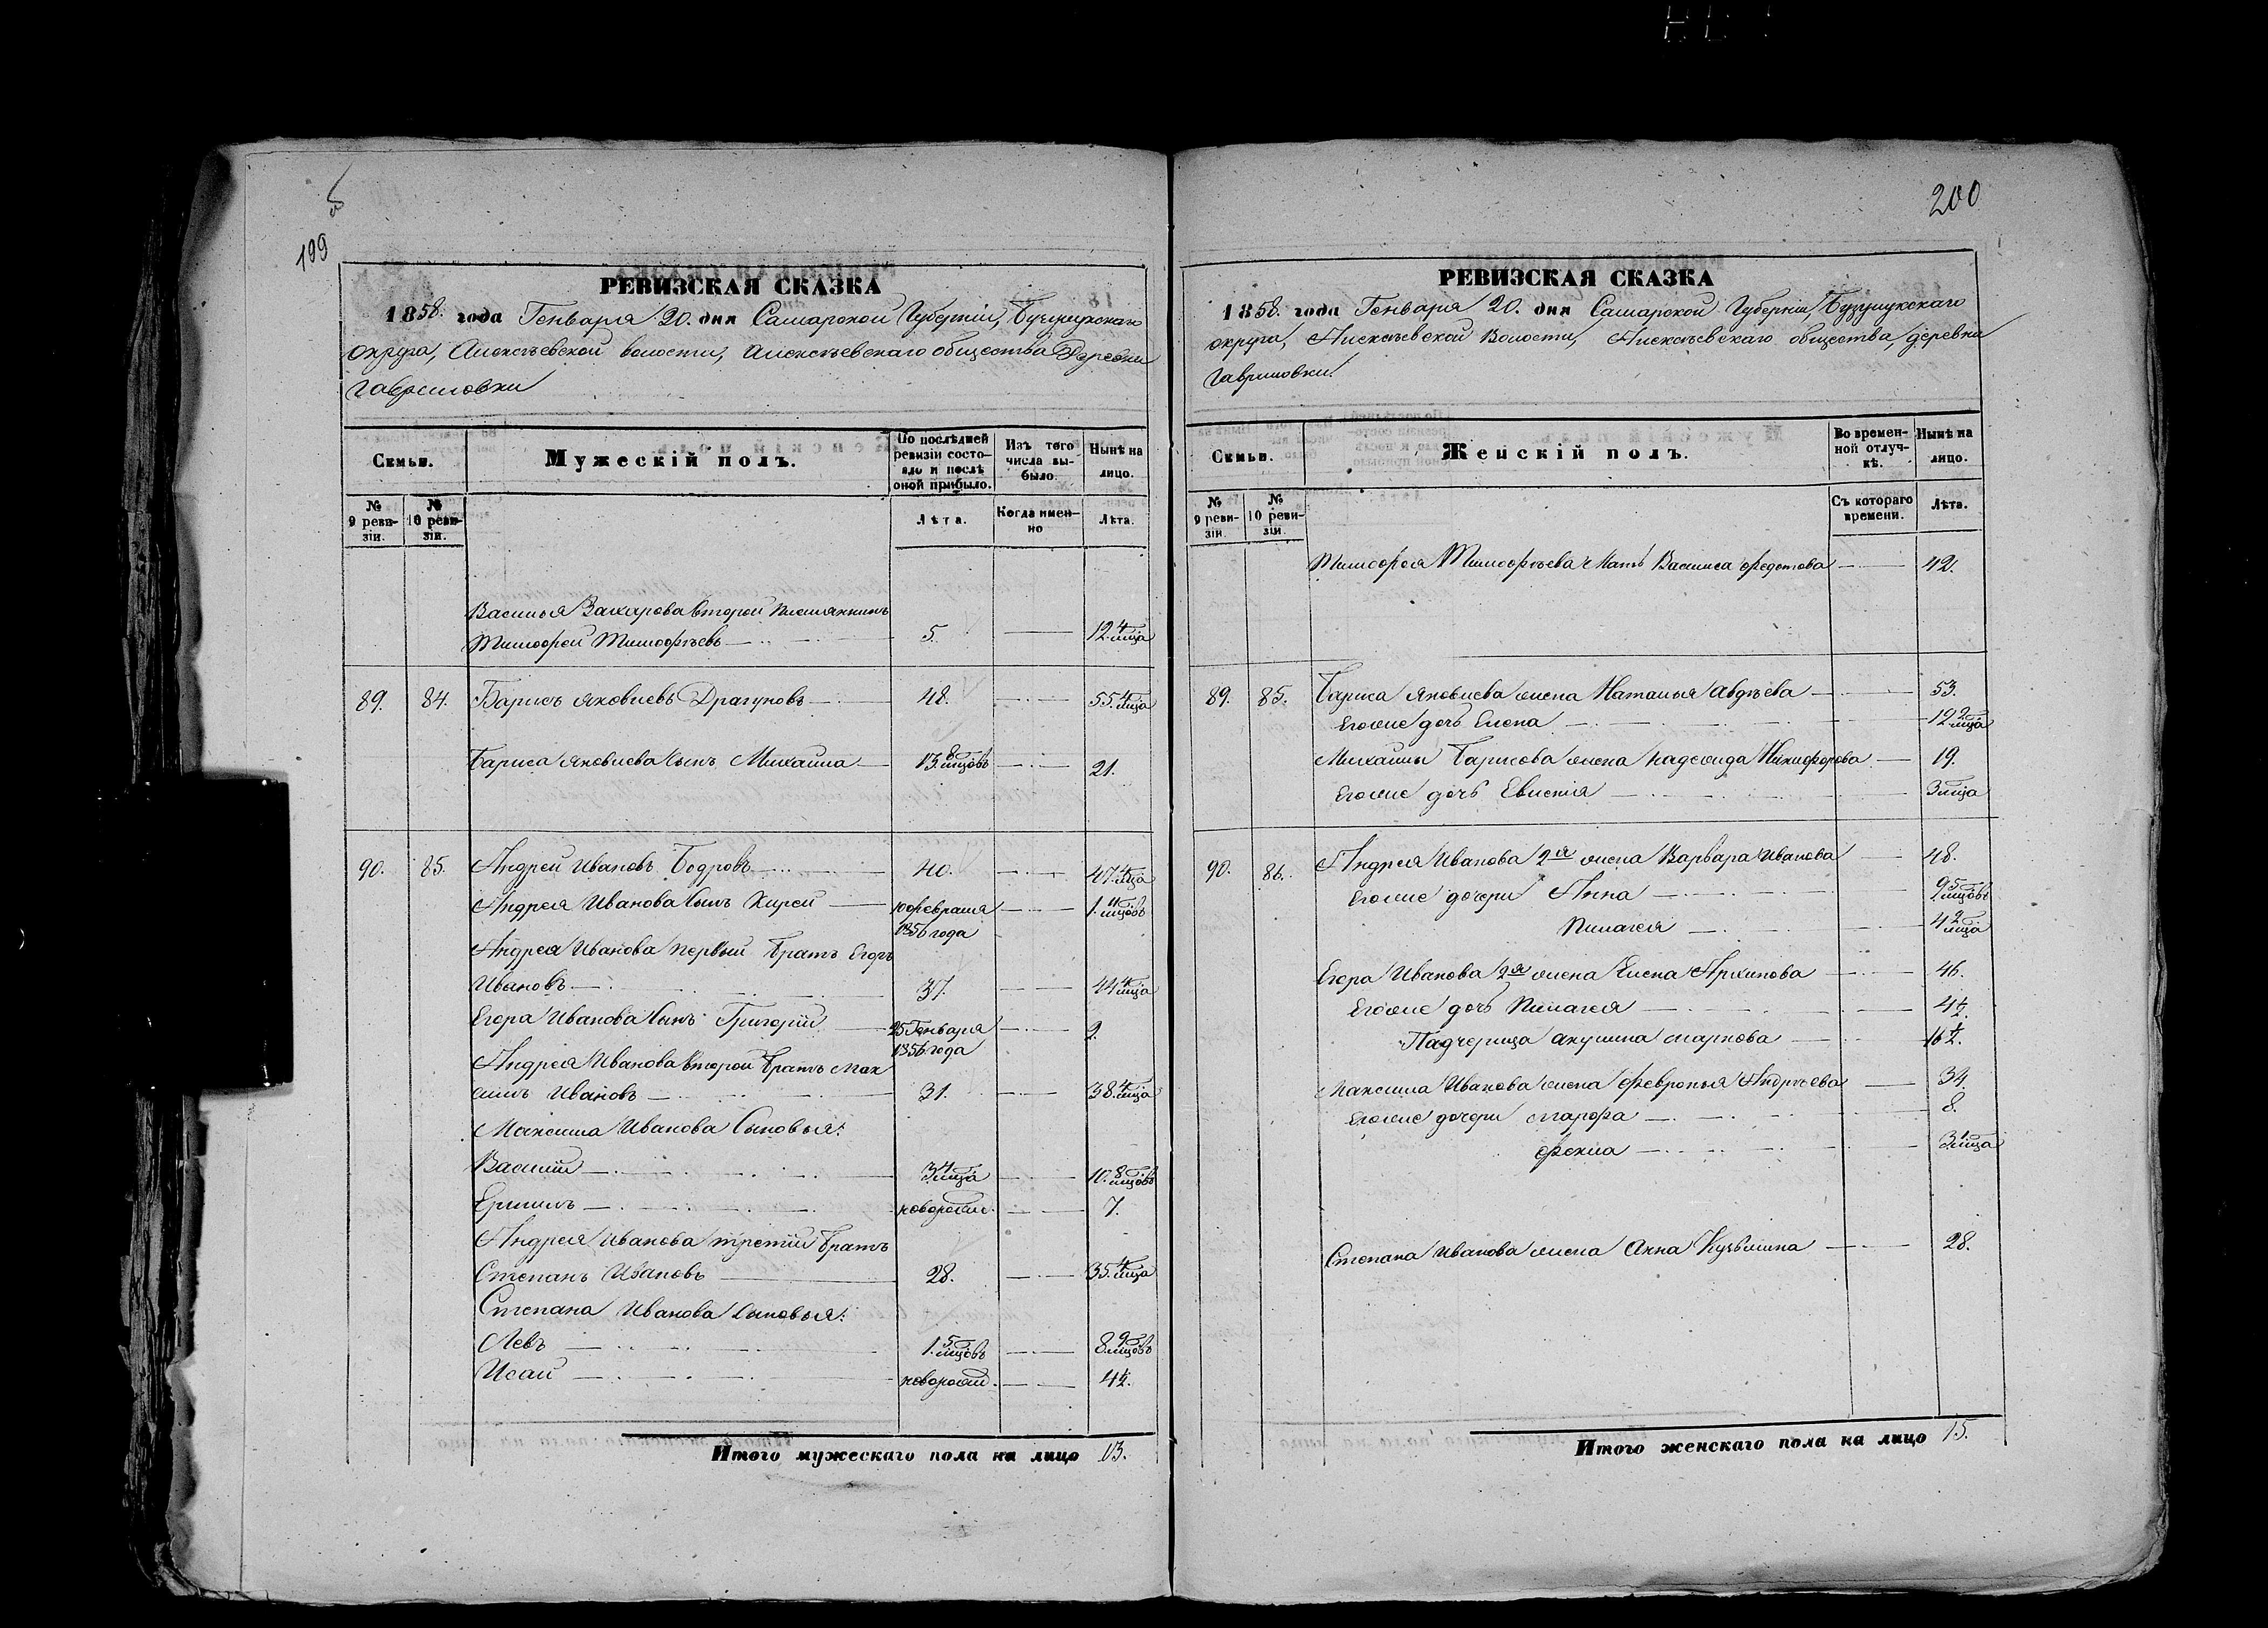 199
РЕВИЗСКАЯ СКАЗКА
1858. года Генваря 20. дня Самарской Губерніи, Бузулукскаго
округа, Алексѣевской волости, Алексѣевскаго общества Деревни
Гавриловки
Семьи.
Мужескій полъ.
По послѣдней ревизіи состояло и послѣ оной прибыло.
Изъ того числа выбыло.
Нынѣ на лицо.
№ 9 ревизіи.
№ 10 ревизіи.
Лѣта.
Когда именно
Лѣта.
Василья Захарова второй племянникъ
Тимофей Тимофѣевъ 5. 12. 4 мѣца
89. 84. Барисъ Яковлевъ Драгуновъ 48. 55. 4 мѣца
Бариса Яковлева сынъ Михаила 13. 8 мѣцовъ 21.
90. 85. Андрей Ивановъ Бодровъ 40. 47. 4 мѣца
Андрея Иванова сынъ Кирей 10 февраля 1856 года 1. 11 мѣцовъ
Андрея Иванова первый братъ Егоръ
Ивановъ 37. 44. 4 мѣца
Егора Иванова сынъ Григорій 25 Генваря 1856 года 2.
Андрея Иванова второй братъ Мак
симъ Ивановъ 31. 38. 4 мѣца
Максима Иванова Сыновья:
Василій 3. 4 мѣца 10. 8 мѣцовъ
Ермилъ новорожд. 7.
Андрея Иванова третій братъ
Степанъ Ивановъ 28. 35. 4 мѣца
Степана Иванова сыновья:
Левъ 1. 5 мѣцовъ 8. 9 мѣцовъ
Исай новорожд. 4 1/2.
Итого мужескаго пола на лицо 13.
200
РЕВИЗСКАЯ СКАЗКА
1858. года Генваря 20. дня Самарской Губерніи, Бузулукскаго
округа, Алексѣевской Волости, Алексѣевскаго общества, деревни
Гавриловки.
Семьи.
Женскій полъ.
Во временной отлучкѣ.
Нынѣ на лицо.
№ 9 ревизіи.
№ 10 ревизіи.
Съ котораго времени.
Лѣта.
Тимофея Тимофѣева Мать Василиса Федотова 42.
89. 85. Бариса Яковлева жена Наталья Авдѣева 53.
Егоже дочь Елена 12. 2 мѣца
Михаилы Барисова жена Надежида Никифорова 19.
Егоже дочь Евленія 3 мѣца
90. 86. Андрея Иванова 2я жена Варвара Иванова 48.
Егоже дочери Анна 9. 5 мѣцовъ
Пилагея 4. 2 мѣца
Егора Иванова 2я жена Елена Архипова 46.
Егоже дочь Пилагея 4 1/2.
Падчерица Акулина Маркова 16 1/2.
Максима Иванова жена Февронья Андрѣева 34.
Егоже дочери Марфа 8.
Фекла 3. 1 мѣца
Степана Иванова жена Анна Кузьмина 28.
Итого женскаго пола на лицо 15.